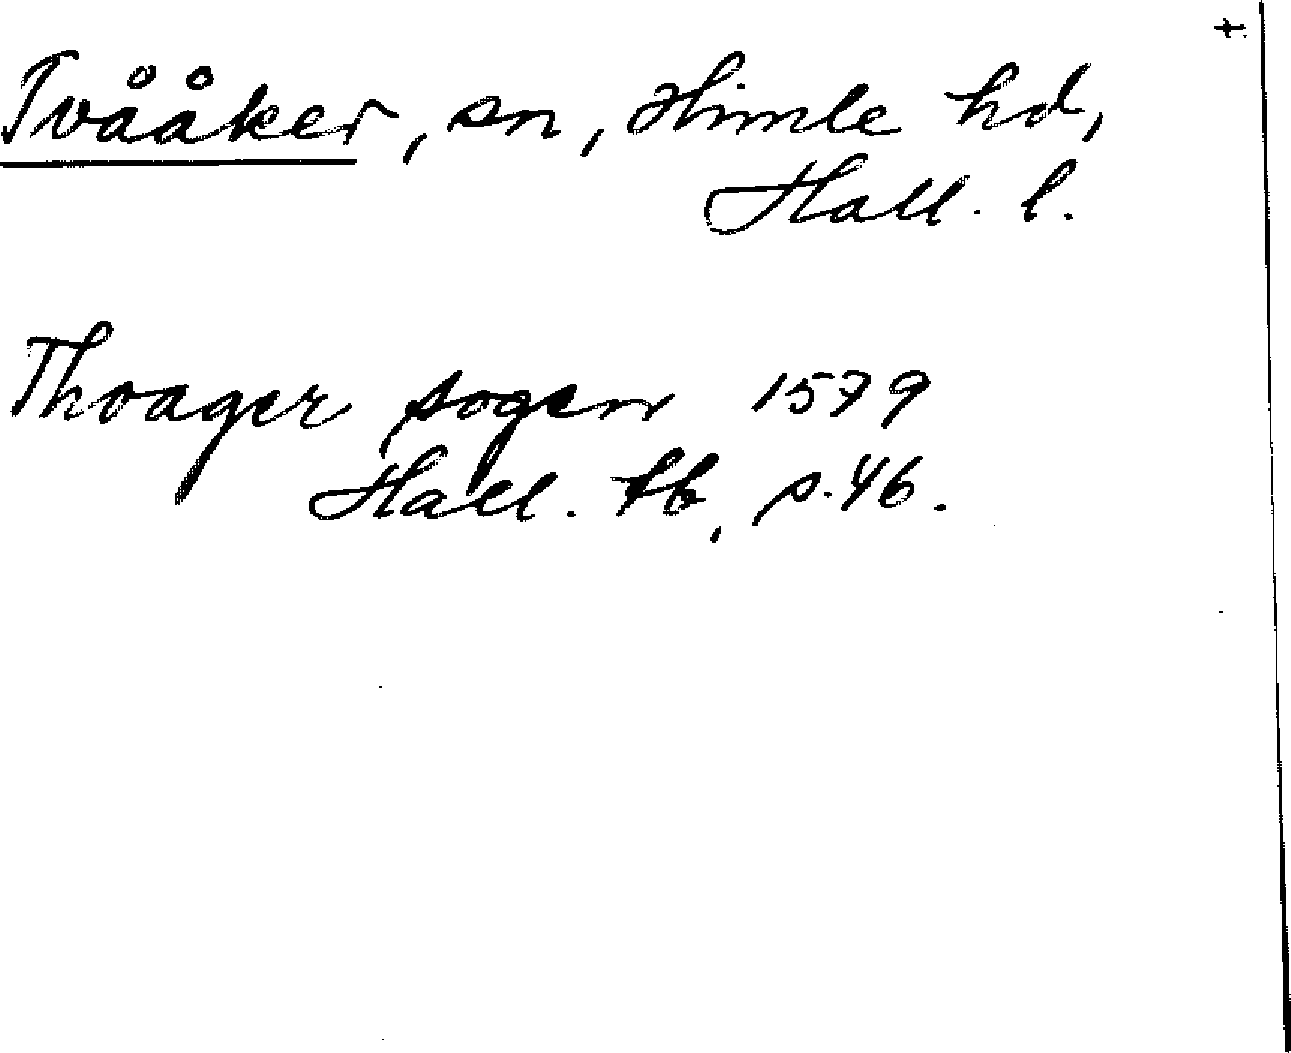 Tvååker, sn, Himle hd,
Hall. l.
Thoager sogen 1579
Hall. tb, s. 46.